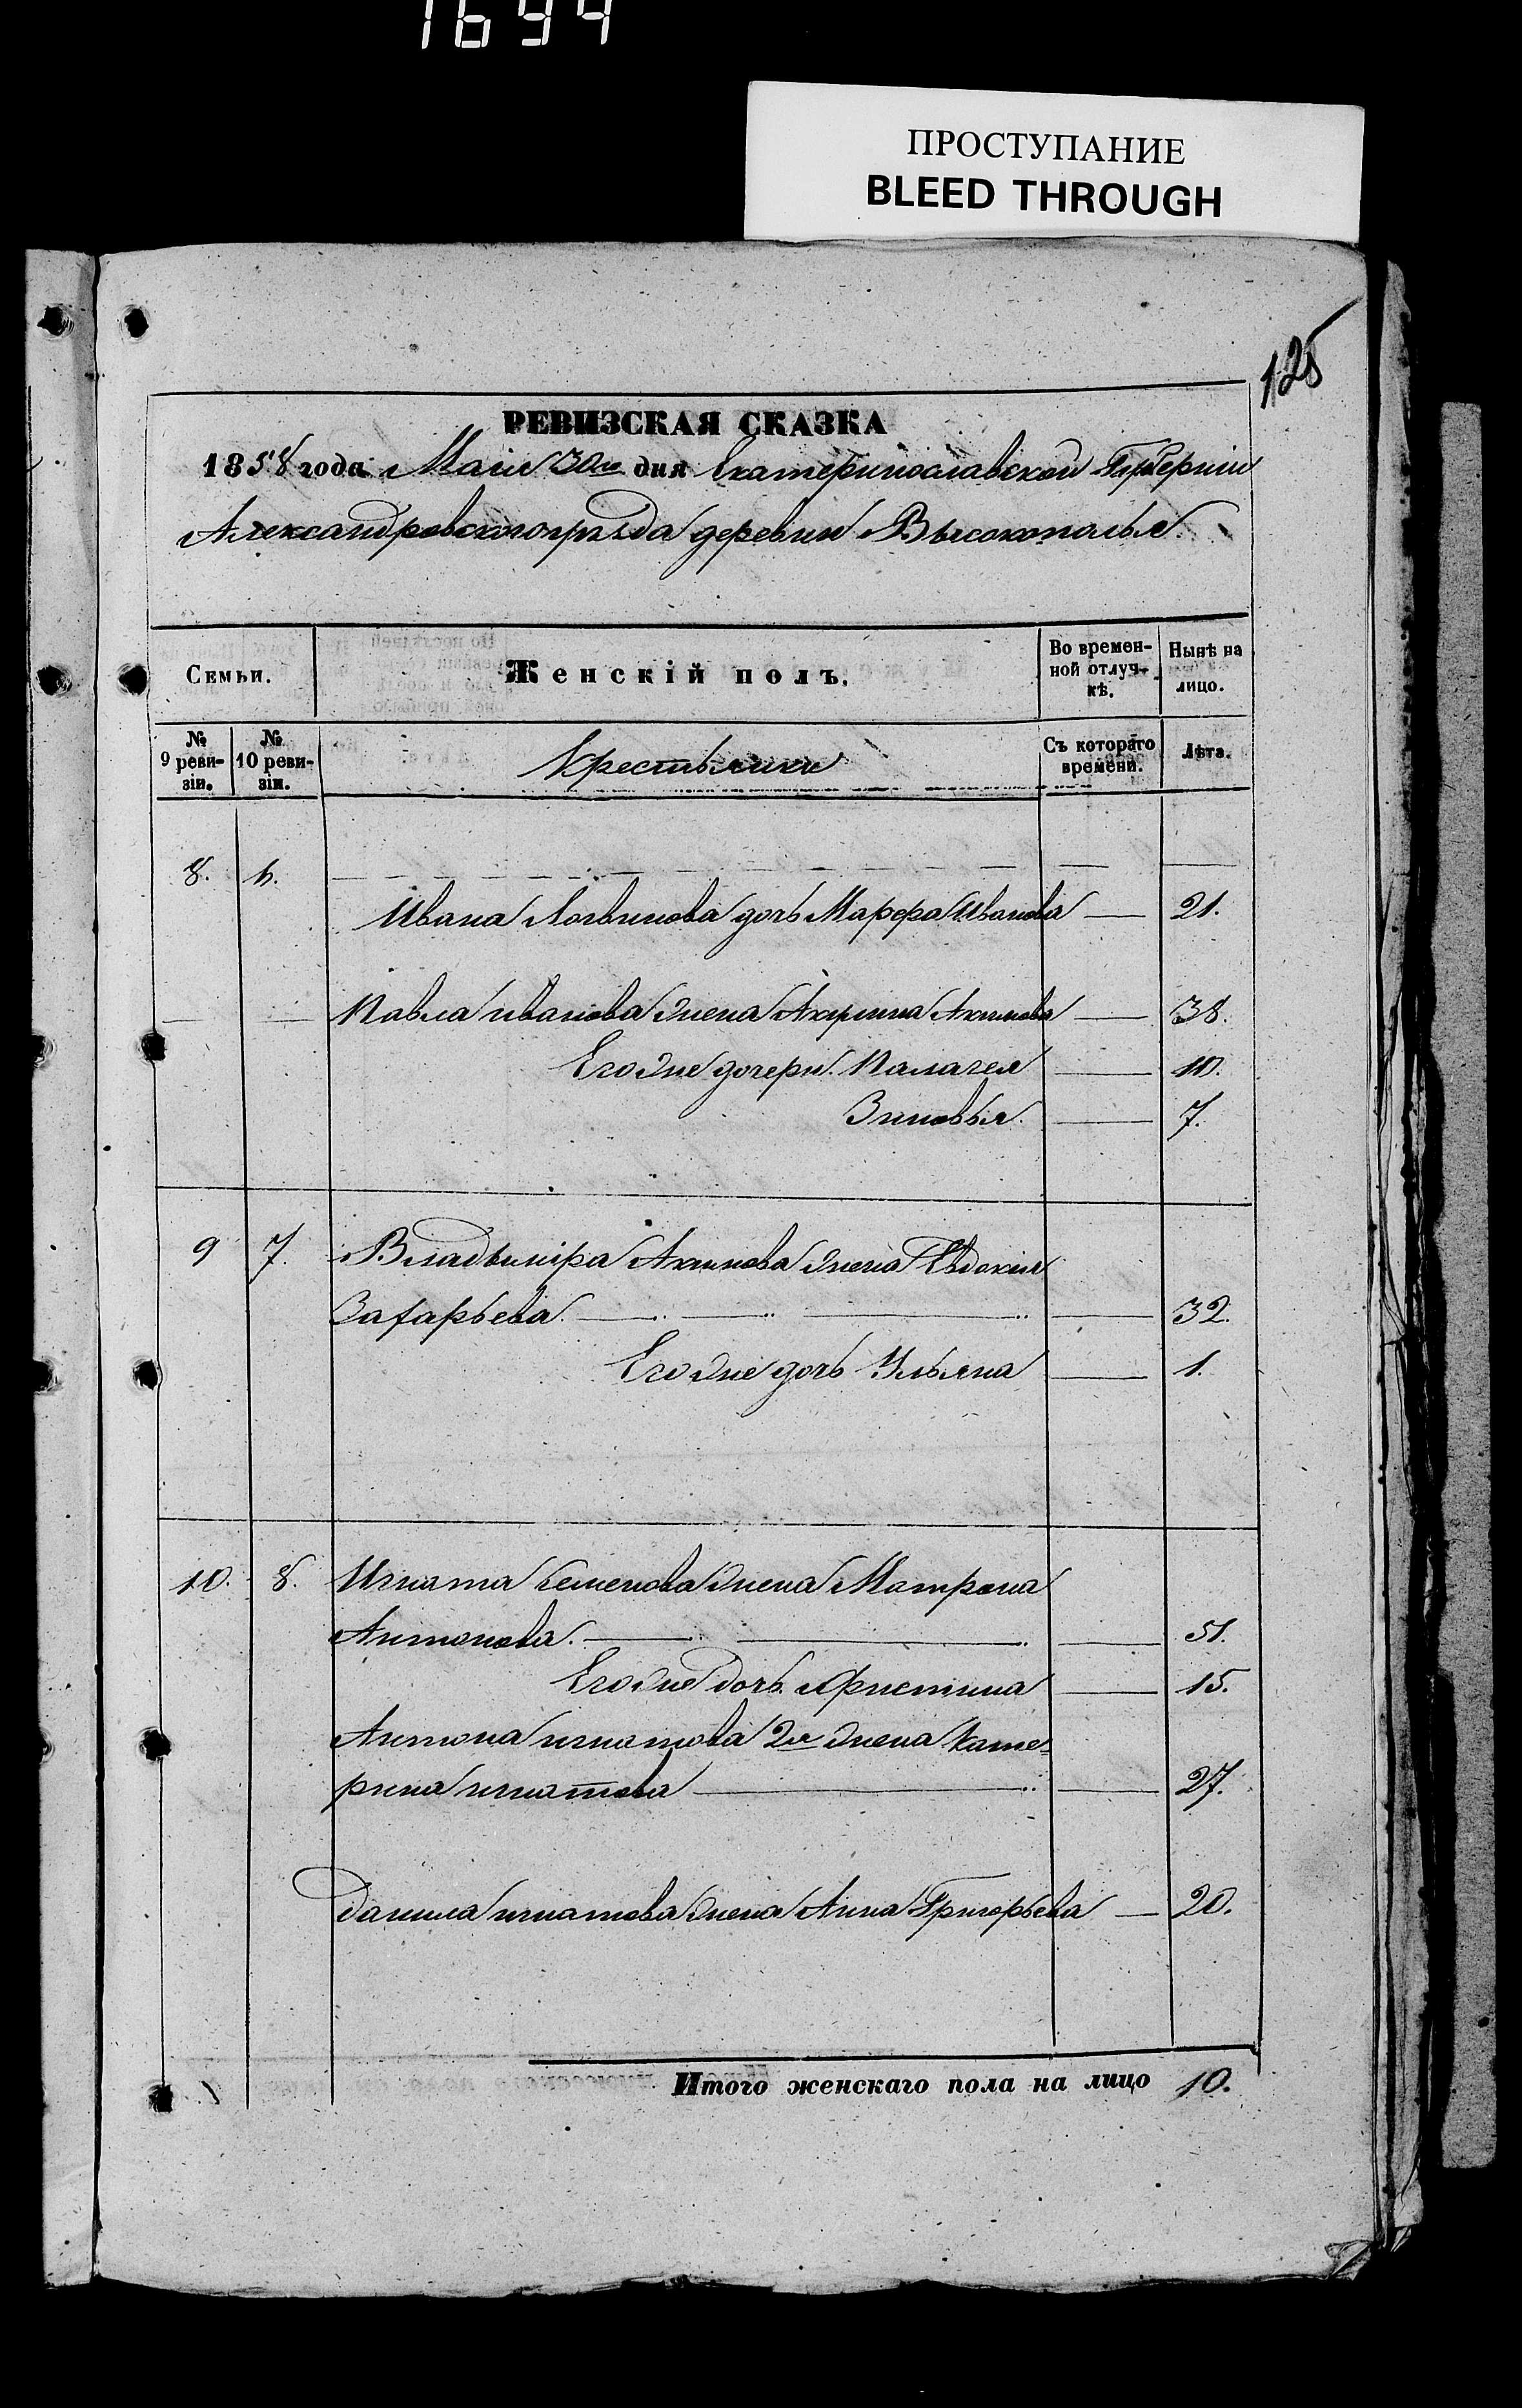 1694
ПРОСТУПАНИЕ
BLEED THROUGH
125
РЕВИЗСКАЯ СКАЗКА
1858 года Маія 30го дня Екатеринославской Губерніи
Александровского уѣзда деревни Высокополья
Семьи.
Женскій полъ.
Во времен-
ной отлуч-
кѣ.
Нынѣ на
лицо.
№
9 реви-
зіи.
№
10 реви-
зіи.
Крестьянки
Съ котораго
времени.
Лѣта.
8. 6.
Ивана Логвинова дочь Марфа Иванова — 21.
Павла иванова жена Акулина Акимова — 38.
Его же дочери Палагея — 10.
Зиновья. — 7.
9 7. Владыміра Акимова жена Евдокия
Захарьева. — 32.
Его же дочь Ульяна — 1.
10. 8. Игната Семенова жена Матрона
Антонова. — 51.
Его же дочь Христина — 15.
Антона игнатова 2я жена Кате-
рина игнатова — 27.
Данила игнатова жена Анна Григорьева — 20.
Итого женскаго пола на лицо 10.